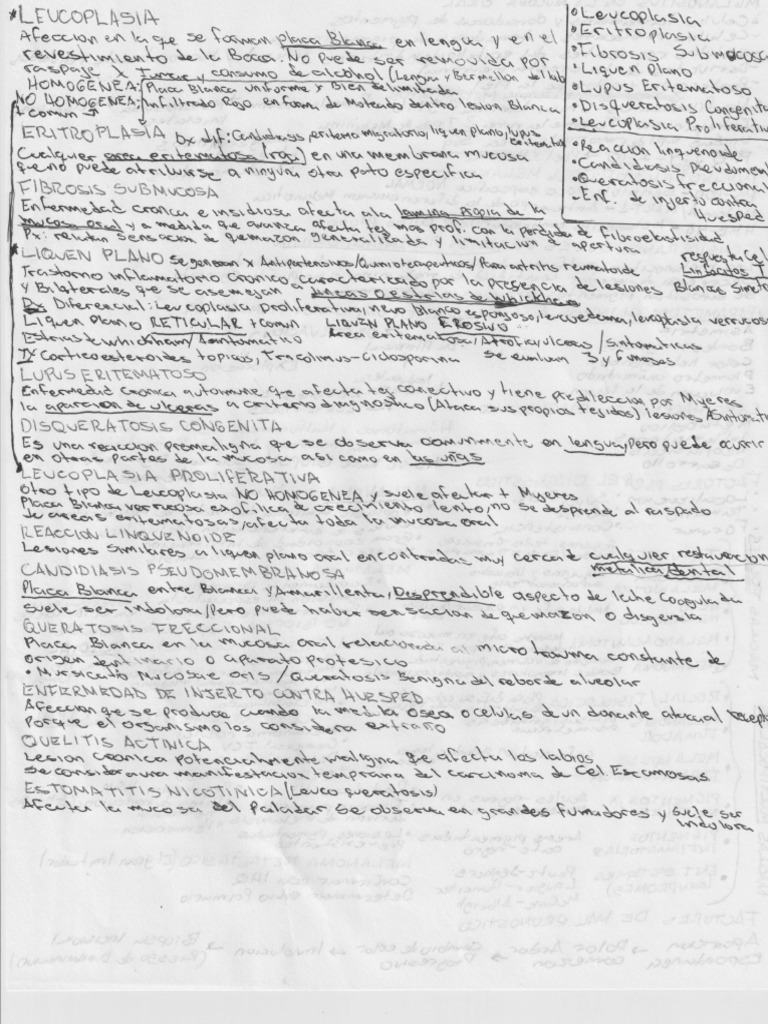 *LEUCOPLASIA
Afeccion en la que se forman placa Blanca en lengua y en el
revestimiento de la Boca. No Puede ser removida por
raspaje x Fumar y consumo de alcohol (Lengua y Bermellon del lab
HOMOGENEA: Placa Blanca uniforme y Bien delimitada
NO HOMOGENEA: Infiltrado Rojo en forma de Moteado dentro lesion Blanca
+ comun
ERITROPLASIA Dx dif: Candidiasis, eritema migratorio, liquen plano, lupus eritematoso
Cualquier area eritematosa (roja) en una membrana mucosa
que no puede atribuirse a ninguna otra pato especifica
FIBROSIS SUBMUCOSA
Enfermedad cronica e insidiosa afecta a la lamina propia de la
mucosa oral y a medida que avanza afecta tej mas prof. con la perdida de Fibroelastisidad
Px: relatan sensacion de quemazon generalizada y limitacion de apertura
LIQUEN PLANO se generan x Antipertensivos/Quimioterapeuticos/Para artritis reumatoide
respuesta Cel
Linfocitos T
Trastorno inflamatorio Cronico caracterizado por la presencia de lesiones Blancas Simetr
y Bilaterales que se asemejan a Lineas o estrias de Whickham
Dx Diferencial: Leucoplasia proliferativa, nevo Blanco esponjoso, leucoedema, leucoplasia verrucosa
Liquen Plano RETICULAR + comun LIQUEN PLANO EROSIVO
Estrias de whichham/Asintomatico Area eritematosa/Atrofica/ulceras/sintomaticas
Tx Corticoesteroides topicos, Tracolimus-ciclosporina Se evaluan 3 y 6 meses
LUPUS ERITEMATOSO
Enfermedad Cronica autoinmune que afecta tej conectivo y tiene predileccion por Mujeres
la aparicion de ulceras a criterio diagnostico (Ataca sus propios tejidos) lesiones Asintomati
DISQUERATOSIS CONGENITA
Es una reaccion premaligna que se observa comunmente en lengua, pero puede ocurrir
en otras partes de la mucosa asi como en las uñas
LEUCOPLASIA PROLIFERATIVA
Otro tipo de Leucoplasia NO HOMOGENEA y suele afectar + Mujeres
Placa Blanca verrucosa exofitica de crecimiento lento, no se desprende al raspado
de areas eritematosas/afecta toda la mucosa oral
REACCION LINQUENOIDE
Lesiones Similares a liquen plano oral encontradas muy cerca de cualquier restauracion
metalica/dental
CANDIDIASIS PSEUDOMEMBRANOSA
Placa Blanca entre Blanca y Amarillenta, Desprendible aspecto de leche Coagulada
suele ser indolora/Pero puede haber sensacion de quemazon o disgersia
QUERATOSIS FRECCIONAL
Placa Blanca en la mucosa oral relacionada al micro trauma constante de
origen dentinario o aparato protesico
• Mursicatio Mucosae oris/Queratosis Benigna del reborde alveolar
ENFERMEDAD DE INJERTO CONTRA HUESPED
Afeccion que se produce cuando la medula osea o celulas de un donante atacan al recepto
Porque el organismo los considera extraño
QUELITIS ACTINICA
Lesion Cronica potencialmente maligna que afecta los labios
se considera una manifestacion temprana del carcinoma de Cel. Escamosas
ESTOMATITIS NICOTINICA (Leuco queratosis)
Afecta la mucosa del Paladar se observa en grandes fumadores y suele ser
indolora
• Leucoplasia
• Eritroplasia
• Fibrosis Submucosa
• Liquen Plano
• Lupus Eritematoso
• Disqueratosis Congenita
• Leucoplasia Proliferativ
• Reaccion linquenoide
• Candidasis Pseudomem
• Queratosis freccional
• Enf. de injerto contra
Huesped